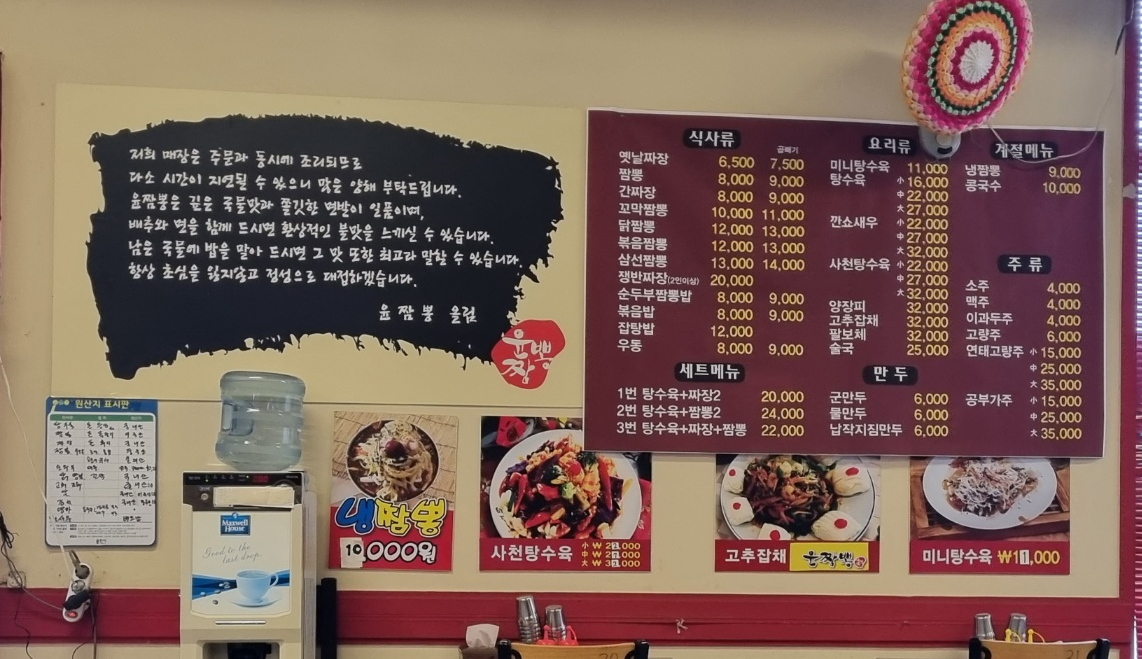 저희 매장은 주문과 동시에 조리되므로
다소 시간이 지연될 수 있으니 많은 양해 부탁드립니다.
윤짬뽕은 깊은 국물맛과 쫄깃한 면발이 일품이며,
배추와 면을 함께 드시면 환상적인 불맛을 느끼실 수 있습니다.
남은 국물에 밥을 말아 드시면 그 맛 또한 최고라 말할 수 있습니다.
항상 초심을 잃지않고 정성으로 대접하겠습니다.
윤 짬 뽕 올림
윤짬뽕
식사류
곱빼기
옛날짜장 6,500 7,500
짬뽕 8,000 9,000
간짜장 8,000 9,000
꼬막짬뽕 10,000 11,000
닭짬뽕 12,000 13,000
볶음짬뽕 12,000 13,000
삼선짬뽕 13,000 14,000
쟁반짜장(2인이상) 20,000
순두부짬뽕밥 8,000 9,000
볶음밥 8,000 9,000
잡탕밥 12,000
우동 8,000 9,000
세트메뉴
1번 탕수육+짜장2 20,000
2번 탕수육+짬뽕2 24,000
3번 탕수육+짜장+짬뽕 22,000
요리류
미니탕수육 11,000
탕수육 小 16,000
中 22,000
大 27,000
깐쇼새우 小 22,000
中 27,000
大 32,000
사천탕수육 小 22,000
中 27,000
大 32,000
양장피 32,000
고추잡채 32,000
팔보채 32,000
술국 25,000
만 두
군만두 6,000
물만두 6,000
납작지짐만두 6,000
계절메뉴
냉짬뽕 9,000
콩국수 10,000
주 류
소주 4,000
맥주 4,000
이과두주 4,000
고량주 6,000
연태고량주 小 15,000
中 25,000
大 35,000
공부가주 小 15,000
中 25,000
大 35,000
원산지 표시판
Maxwell House
Good to the
last drop
냉짬뽕
10,000원
사천탕수육
小 ₩ 22,000
中 ₩ 2,000
大 ₩ 32,000
고추잡채
윤짬뽕
미니탕수육 ₩11,000
20
21